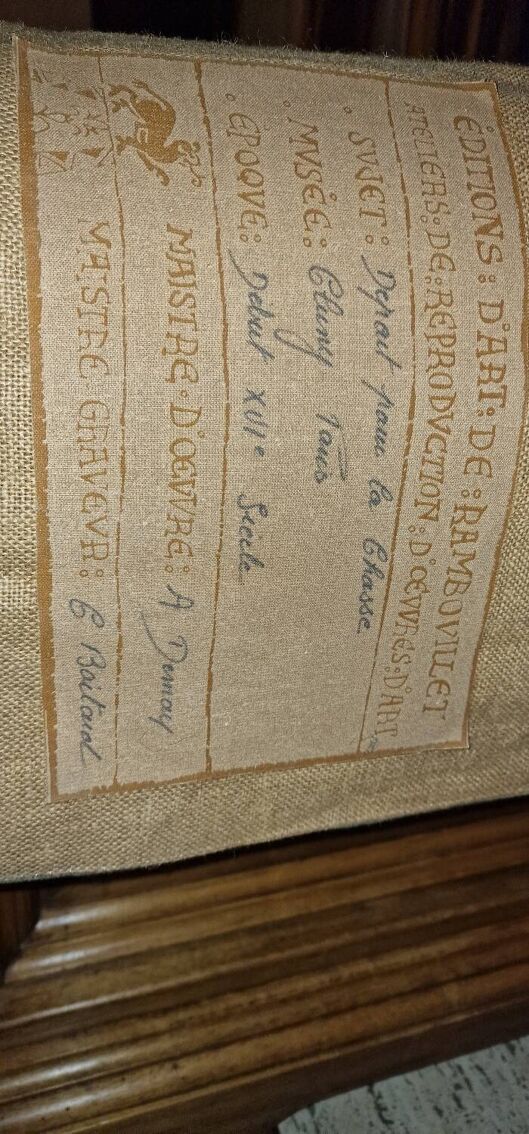 ÉDITIONS : D'ART : DE : RAMBOVILLET
ATELIERS : DE : REPRODVCTION : D'ŒVVRES : D'ART
SVJET : Depart pour la Chasse
MVSÉE : Cluny Paris
ÉPOQVE : Début XVIe Siecle
MAISTRE : D'ŒVVRE : A
MAISTRE GRAVEVR :